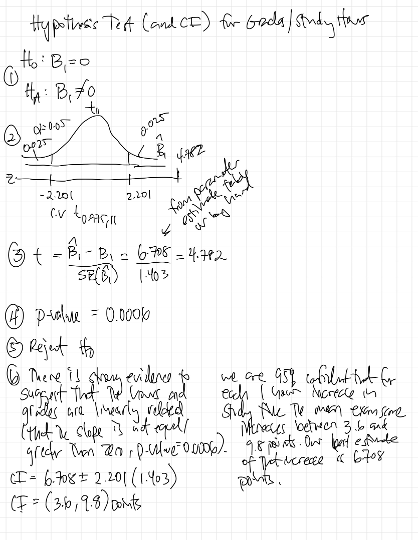 Hypothesis Test (and CI) for Grades/Study Hours
① H₀: B₁ = 0
H_A: B₁ ≠ 0
② α=0.05
t₁₁
0.025
0.025
B̂₁
4.782
-2.201
2.201
c.v t₀.₉₇₅,₁₁
from parameter
estimate table
or by hand
③ t = (B̂₁ - B₁) / SE(B̂₁) = 6.708 / 1.403 = 4.782
④ p-value = 0.0006
⑤ Reject H₀
⑥ There is strong evidence to
suggest that the hours and
grades are linearly related
(that the slope is not equal
greater than zero, p-value=0.0006).
CI = 6.708 ± 2.201 (1.403)
CI = (3.6, 9.8) points
we are 95% confident that for
each 1 hour increase in
study time the mean exam score
increases between 3.6 and
9.8 points. Our best estimate
of that increase is 6.708
points.